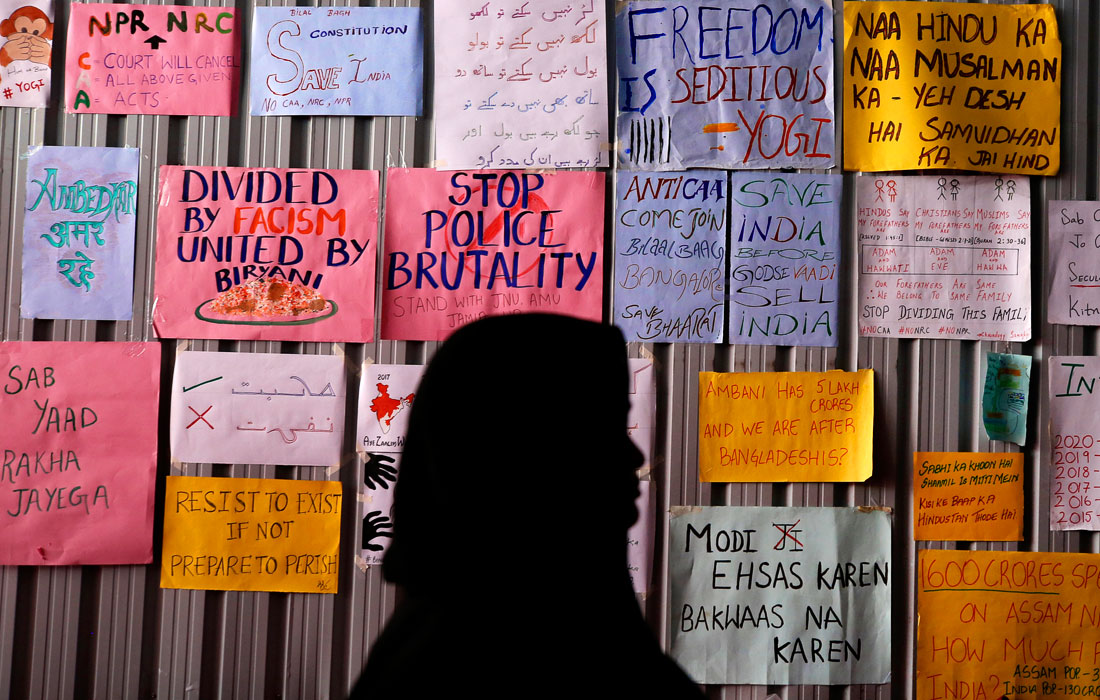 #YOGI
NPR NRC
C = COURT WILL CANCEL
A = ALL ABOVE GIVEN
A = ACTS
BILAL BAGH
CONSTITUTION
SAVE INDIA
NO CAA, NRC, NPR
لڑ نہیں سکتے تو لکھو
لکھ نہیں سکتے تو بولو
بول نہیں سکتے تو ساتھ دو
ساتھ بھی نہیں دے سکتے تو
جو لکھ رہے ہیں بول اور
لڑ رہے ہیں ان کی مدد کرو
FREEDOM
IS SEDITIOUS
- YOGI
NAA HINDU KA
NAA MUSALMAN
KA - YEH DESH
HAI SAMVIDHAN
KA. JAI HIND
AMBEDKAR
अमर
रहे
DIVIDED
BY FACISM
UNITED BY
BIRYANI
STOP
POLICE
BRUTALITY
STAND WITH JNU. AMU
ANTI CAA
COME JOIN
BILAAL BAAG
BANGALORE
SAVE BHAARAT
SAVE
INDIA
BEFORE
GODSEVAADI
SELL
INDIA
HINDUS SAY
MY FOREFATHERS
ARE
CHRISTIANS SAY
MY FOREFATHERS
ARE
MUSLIMS SAY
MY FOREFATHERS
ARE
ADAM
AND
HAWWATI
ADAM
AND
EVE
ADAM
AND
HAWWA
OUR FOREFATHERS ARE SAME
∴ WE BELONG TO SAME FAMILY
STOP DIVIDING THIS FAMILY
#NOCAA #NONRC #NONPR
SAB
YAAD
RAKHA
JAYEGA
محبت
نفرت
2017
RESIST TO EXIST
IF NOT
PREPARE TO PERISH
AMBANI HAS 5 LAKH
CRORES
AND WE ARE AFTER
BANGLADESHIS?
MODI JI
EHSAS KAREN
BAKWAAS NA
KAREN
SABHI KA KHOON HAI
SHAAMIL IS MITTI MEIN
KISI KE BAAP KA
HINDUSTAN THODE HAI
2020-
2019-
2018-
2017-
2016-
2015-
1600 CRORES
ON ASSAM
HOW MUCH
INDIA?
ASSAM POP-3
INDIA POP-130CR